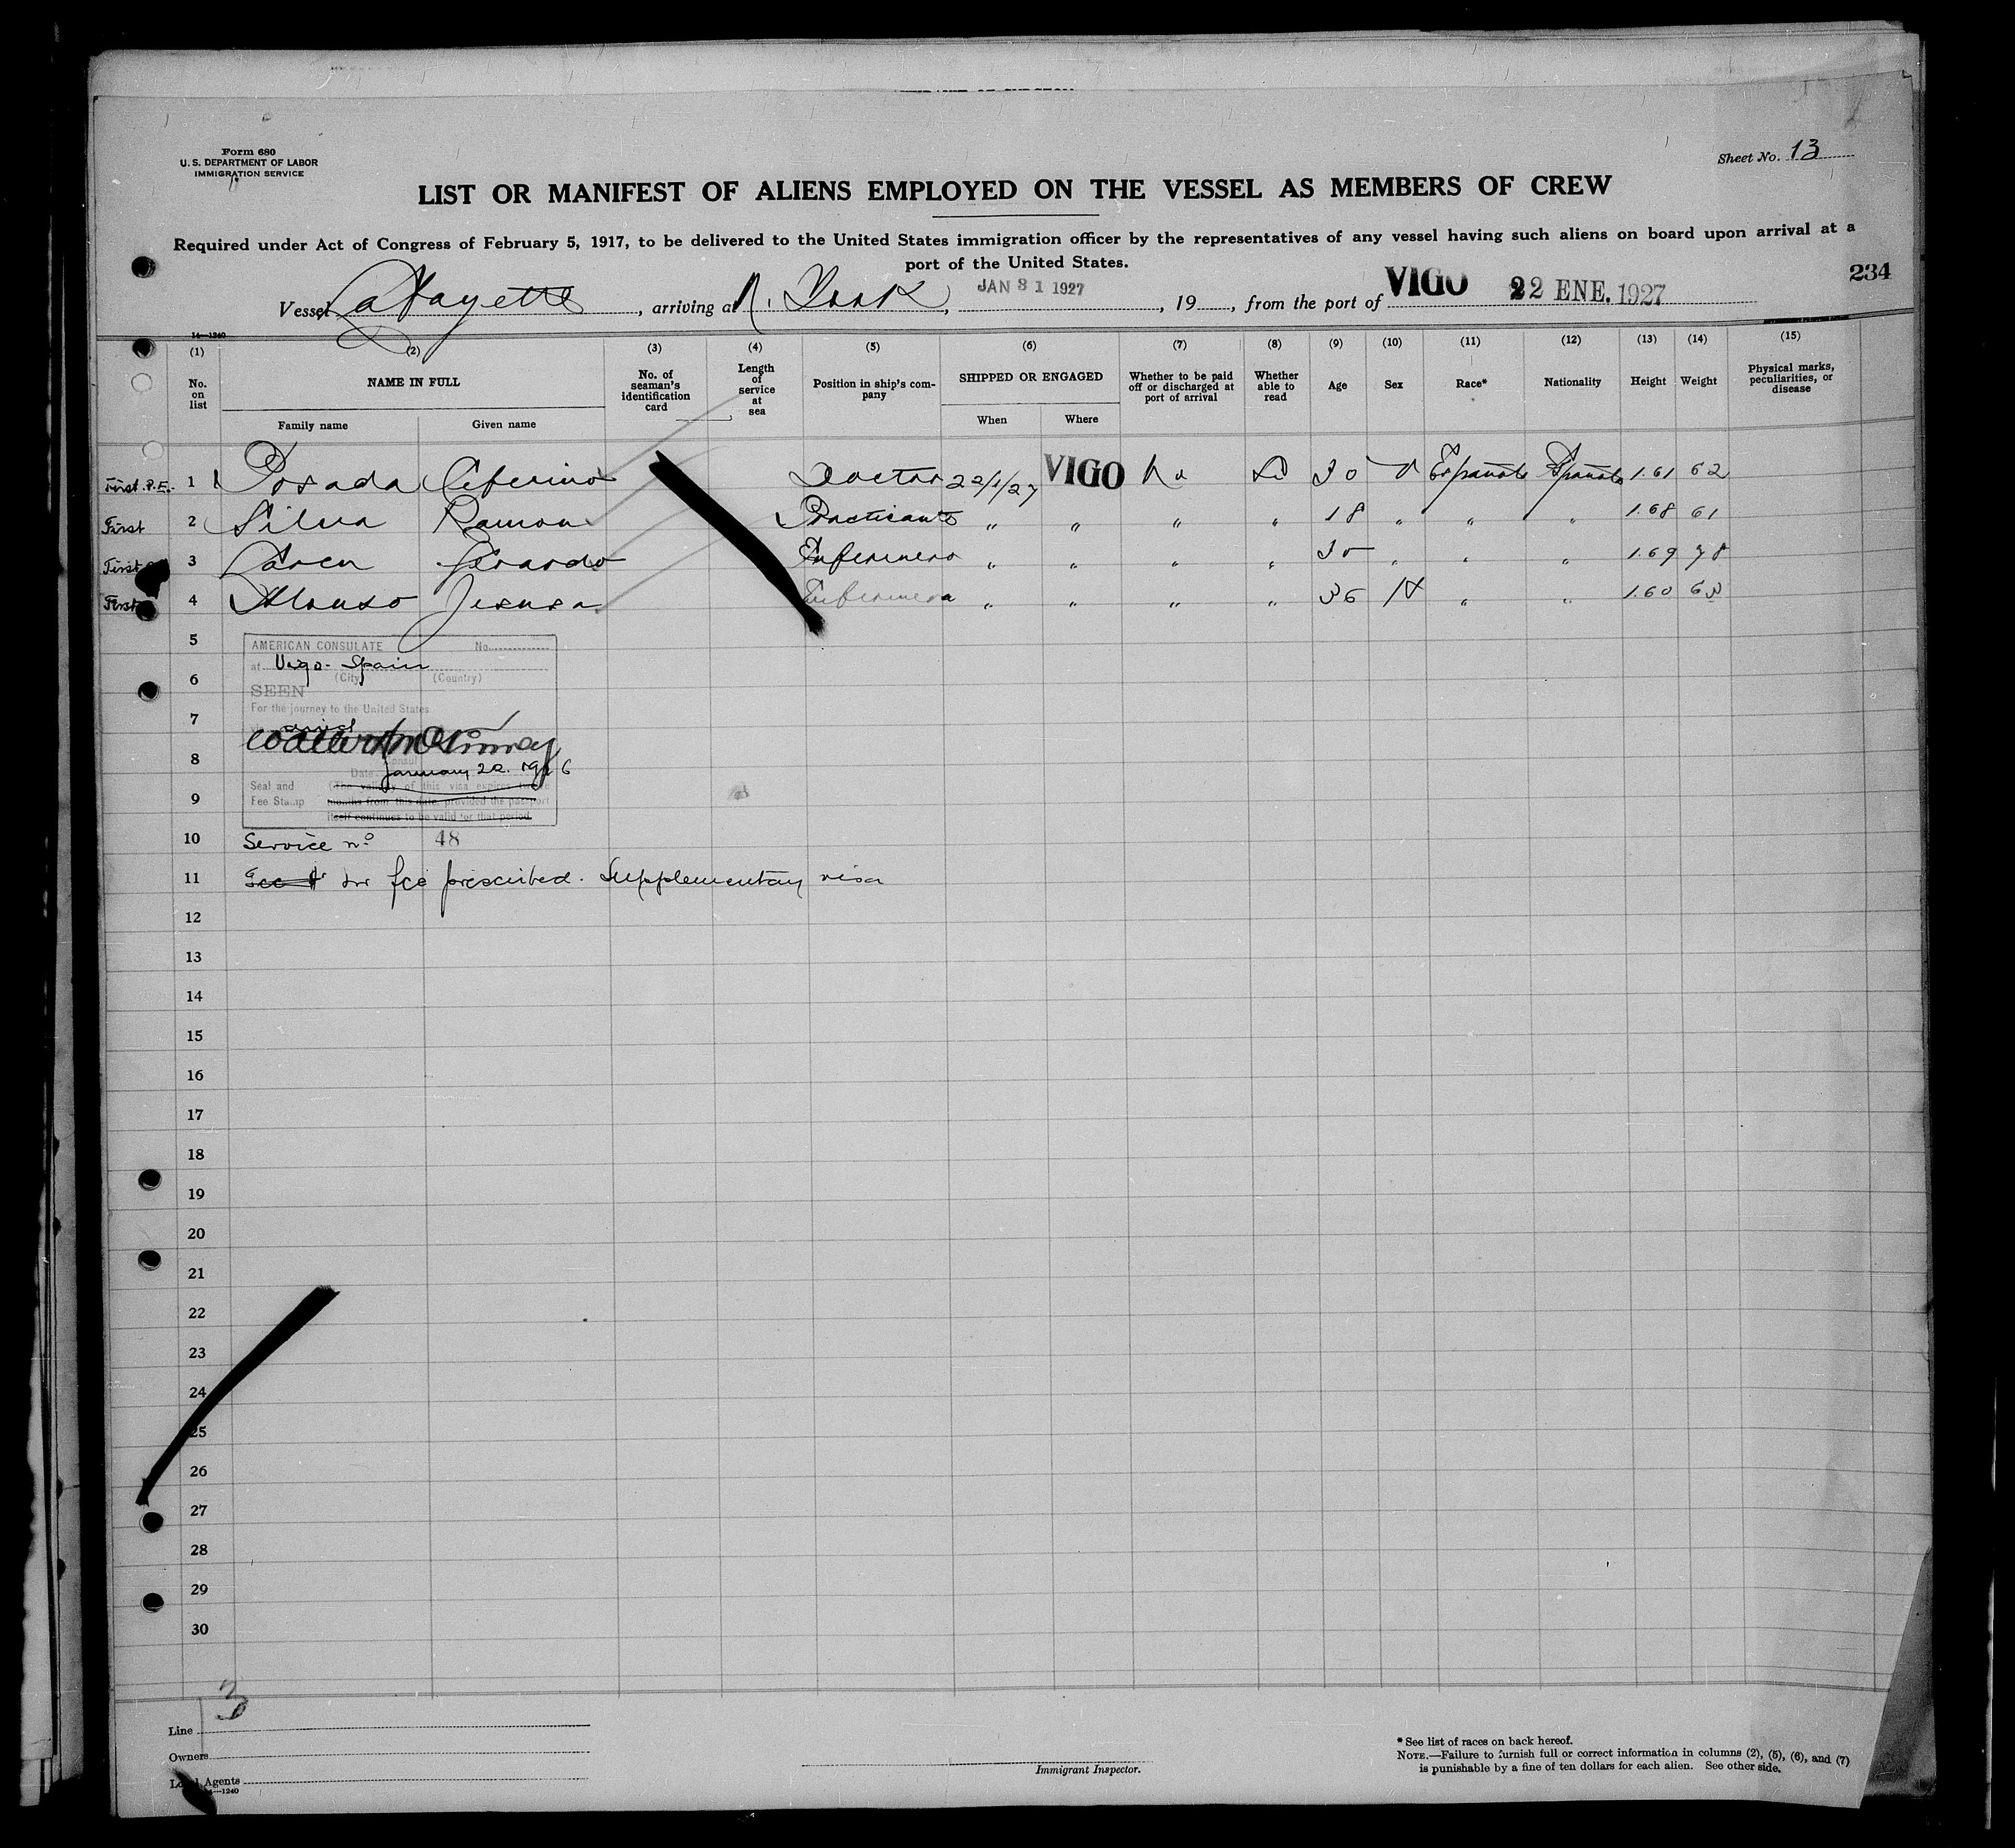 Form 680
U. S. DEPARTMENT OF LABOR
IMMIGRATION SERVICE
Sheet No. 13
LIST OR MANIFEST OF ALIENS EMPLOYED ON THE VESSEL AS MEMBERS OF CREW
Required under Act of Congress of February 5, 1917, to be delivered to the United States immigration officer by the representatives of any vessel having such aliens on board upon arrival at a
port of the United States.
234
Vessel Lafayette, arriving at N. York, JAN 31 1927, 19, from the port of VIGO 22 ENE. 1927
14—1240
(1) (2) (3) (4) (5) (6) (7) (8) (9) (10) (11) (12) (13) (14) (15)
No. on list NAME IN FULL No. of seaman's identification card Length of service at sea Position in ship's company SHIPPED OR ENGAGED Whether to be paid off or discharged at port of arrival Whether able to read Age Sex Race* Nationality Height Weight Physical marks, peculiarities, or disease
Family name Given name When Where
First P.E. 1 Posada Ceferino Doctor 22/1/27 VIGO No Si 30 Española Española 1.61 62
First 2 Silva Ramon Practicante " " " " 18 " " " 1.68 61
First 3 Gerardo Enfermero " " " " " " " 1.69 78
First 4 Alonso Jesusa Enfermera " " " " 36 " " 1.60 63
5
AMERICAN CONSULATE No.
at Vigo - Spain
(City) (Country)
6
SEEN
For the journey to the United States
7
8
Consul
Date January 22. 1926
Seal and Fee Stamp (The validity of this visa expires twelve months from this date, provided the passport itself continues to be valid for that period.
9
10 Service nº 48
11 Fee fee prescribed. Supplementary visa
12
13
14
15
16
17
18
19
20
21
22
23
24
25
26
27
28
29
30
3
Line
Owners
Local Agents
14—1240
Immigrant Inspector.
* See list of races on back hereof.
NOTE.—Failure to furnish full or correct information in columns (2), (5), (6), and (7)
is punishable by a fine of ten dollars for each alien. See other side.